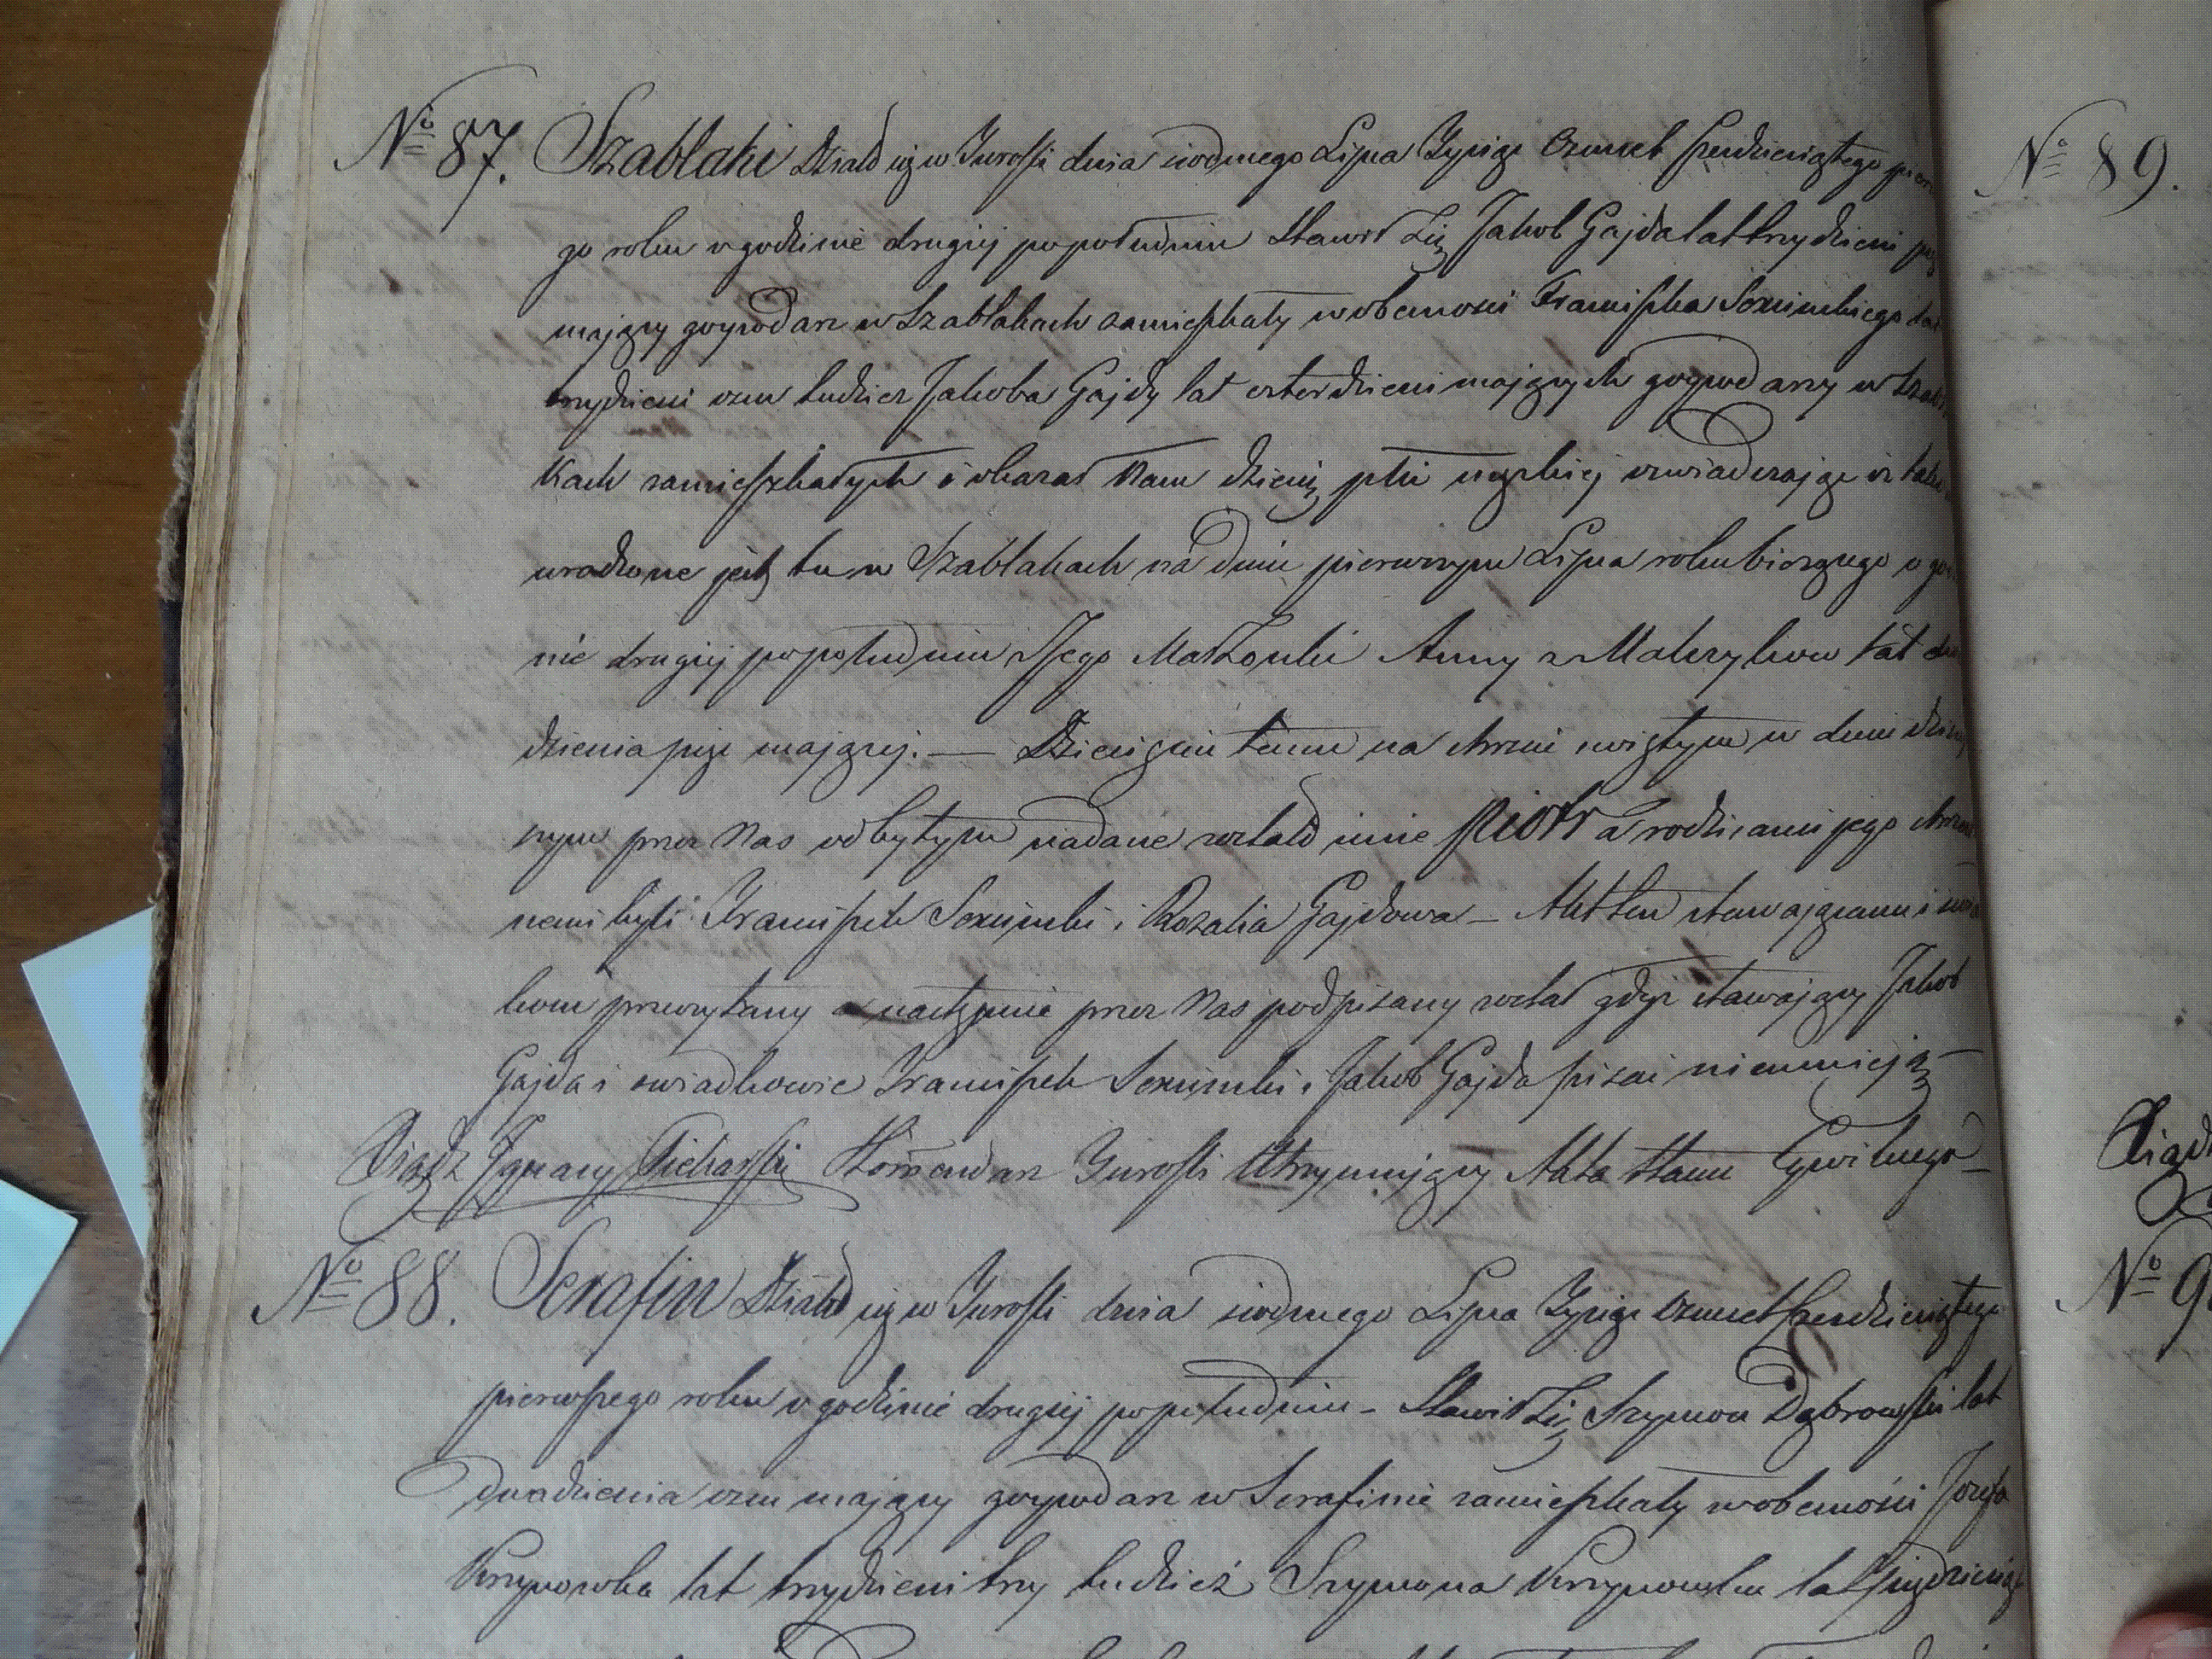 Nº 87. Szablaki Działo się w Turośli dnia siódmego Lipca Tysiąc Osmset sześćdziesiątego
go roku o godzinie drugiej popołudniu Stawił się Jakob Gajda lat trzydzieści
mający gospodarz w Szablakach zamieszkały w obecności Franciszka
trzydzieści osm tudzież Jakoba Gajdy lat czterdzieści mających gospodarzy w
kach zamieszkałych i okazał Nam dziecię płci męzkiej oswiadczając iż
urodzone jest tu w Szablakach na dniu pierwszym Lipca roku bieżącego o
nie drugiej popołudniu z Jego Małżonki Anny z lat
dzieścia pięć mającej. — Dziecięciu temu na chrzcie swiętym w dniu
szym przez Nas odbytym nadane zostało imie Piotr a rodzicami jego
nemi byli Franciszek i Rozalia Gajdowa — Akt ten stawającemu i
kom przeczytany a następnie przez Nas podpisany został gdyż stawający Jakob
Gajda i swiadkowie Franciszek i Jakob Gajda pisać nieumieją —
Xiądz Ignacy Komendarz Turośli Utrzymujący Akta stanu Cywilnego —
Nº 88. Serafin Działo się w Turośli dnia siódmego Lipca Tysiąc Osmset sześćdziesiątego
pierwszego roku o godzinie drugiej popołudniu — Stawił się Szymon Dąbrowski lat
dwadzieścia osm mający gospodarz w Serafinie zamieszkały w obecności Jozefa
lat trzydzieści trzy tudzież Szymona lat
Nº 89.
Xiądz
Nº